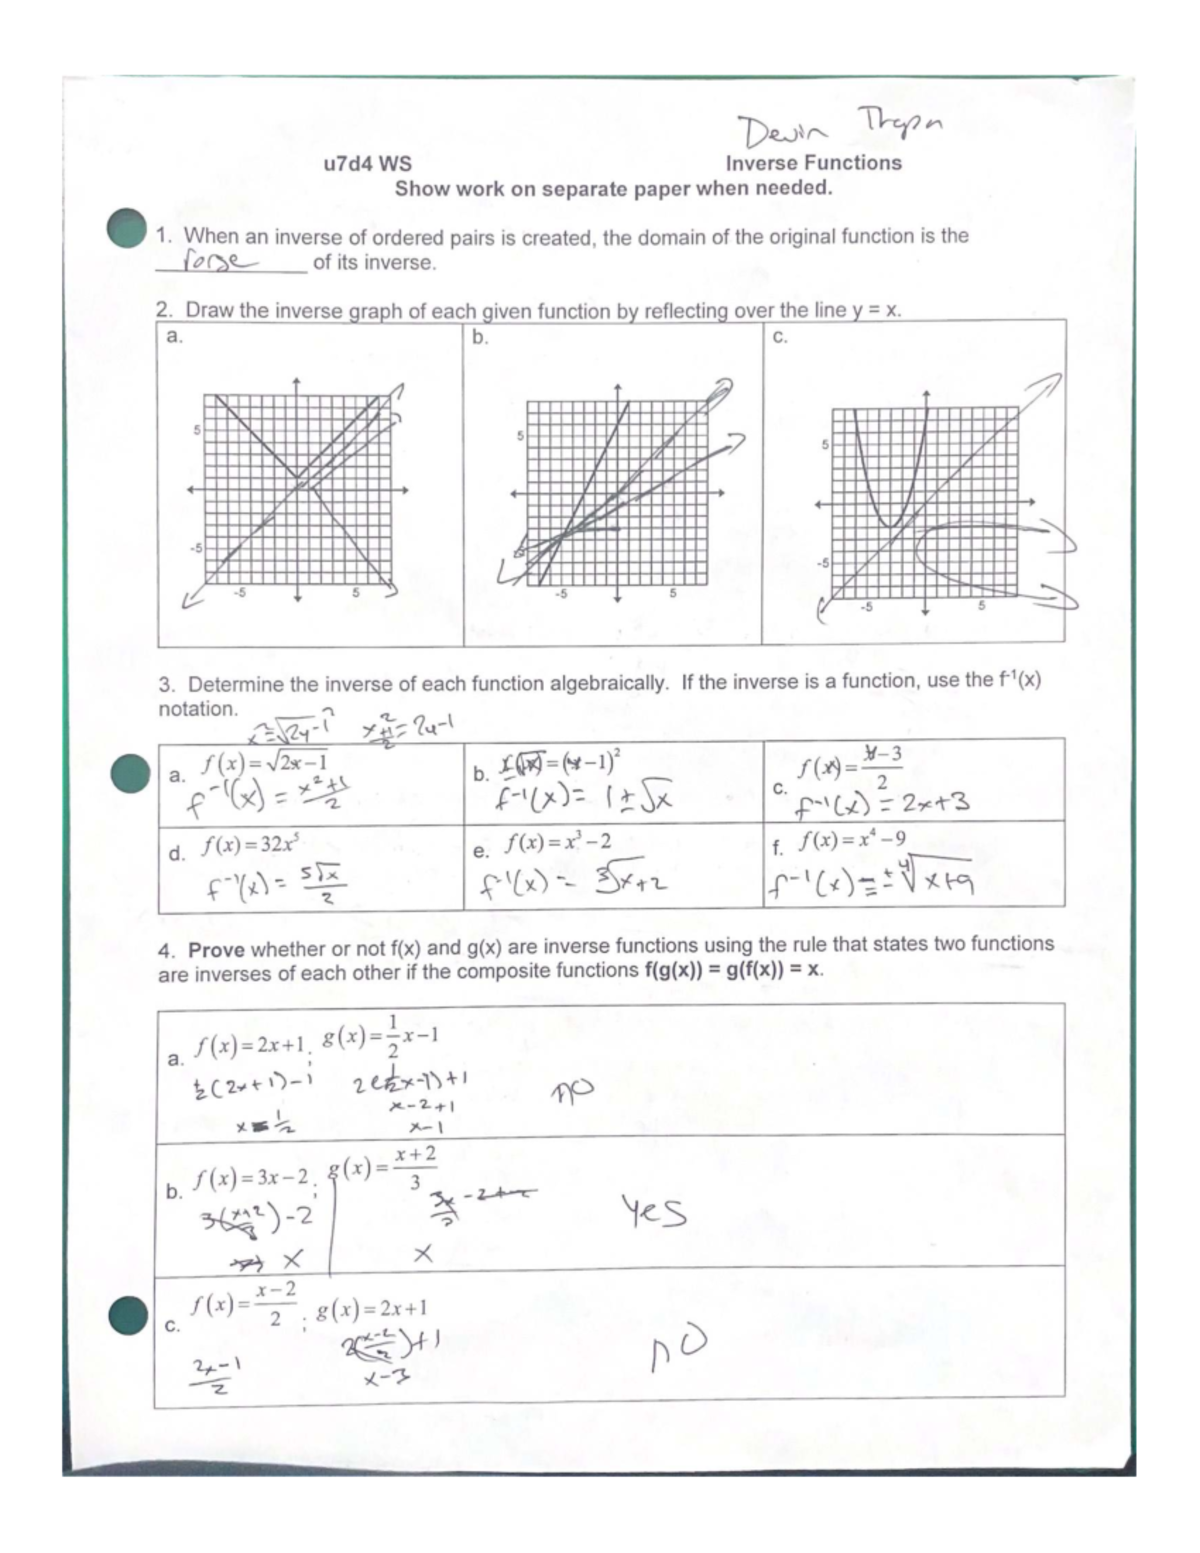 Devin
u7d4 WS Inverse Functions
Show work on separate paper when needed.
1. When an inverse of ordered pairs is created, the domain of the original function is the
of its inverse.
2. Draw the inverse graph of each given function by reflecting over the line y = x.
a. b. c.
5 5 5
-5 -5
-5 5 -5 5 -5 5
3. Determine the inverse of each function algebraically. If the inverse is a function, use the f⁻¹(x)
notation.
x²=√2y-1² x²+1/2=2y-1
a. f(x)=√2x-1
f⁻¹(x) = x²+1/2
b. f(x)=(x-1)²
f⁻¹(x) = 1±√x
c. f(x)=x-3/2
f⁻¹(x) = 2x+3
d. f(x)=32x⁵
f⁻¹(x) = 5√x/2
e. f(x)=x³-2
f⁻¹(x) = ³√x+2
f. f(x)=x⁴-9
f⁻¹(x) = ±⁴√x+9
4. Prove whether or not f(x) and g(x) are inverse functions using the rule that states two functions
are inverses of each other if the composite functions f(g(x)) = g(f(x)) = x.
a. f(x)=2x+1; g(x)=1/2x-1
1/2(2x+1)-1 2(1/2x-1)+1 no
x-2+1
x-1/2 x-1
b. f(x)=3x-2; g(x)=x+2/3
3(x+2/3)-2 3x-2+2/3 yes
x x
c. f(x)=x-2/2; g(x)=2x+1
2(x-2/2)+1 no
2x-1/2 x-3